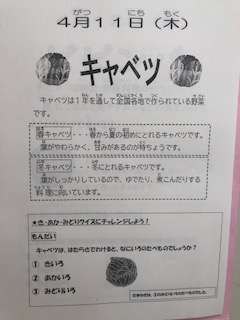 4月11日（木）
キャベツ
キャベツは1年を通して全国各地で作られている野菜
です。
春キャベツ・・・春から夏の初めにとれるキャベツです。
葉がやわらかく、甘みがあるのが特ちょうです。
冬キャベツ・・・冬にとれるキャベツです。
葉がしっかりしているので、ゆでたり、煮こんだりする
料理に向いています。
★き・あか・みどりクイズにチャレンジしよう！
もんだい
キャベツは、はたらきでわけると、なにいろのたべものでしょうか？
① きいろ
② あかいろ
③ みどりいろ